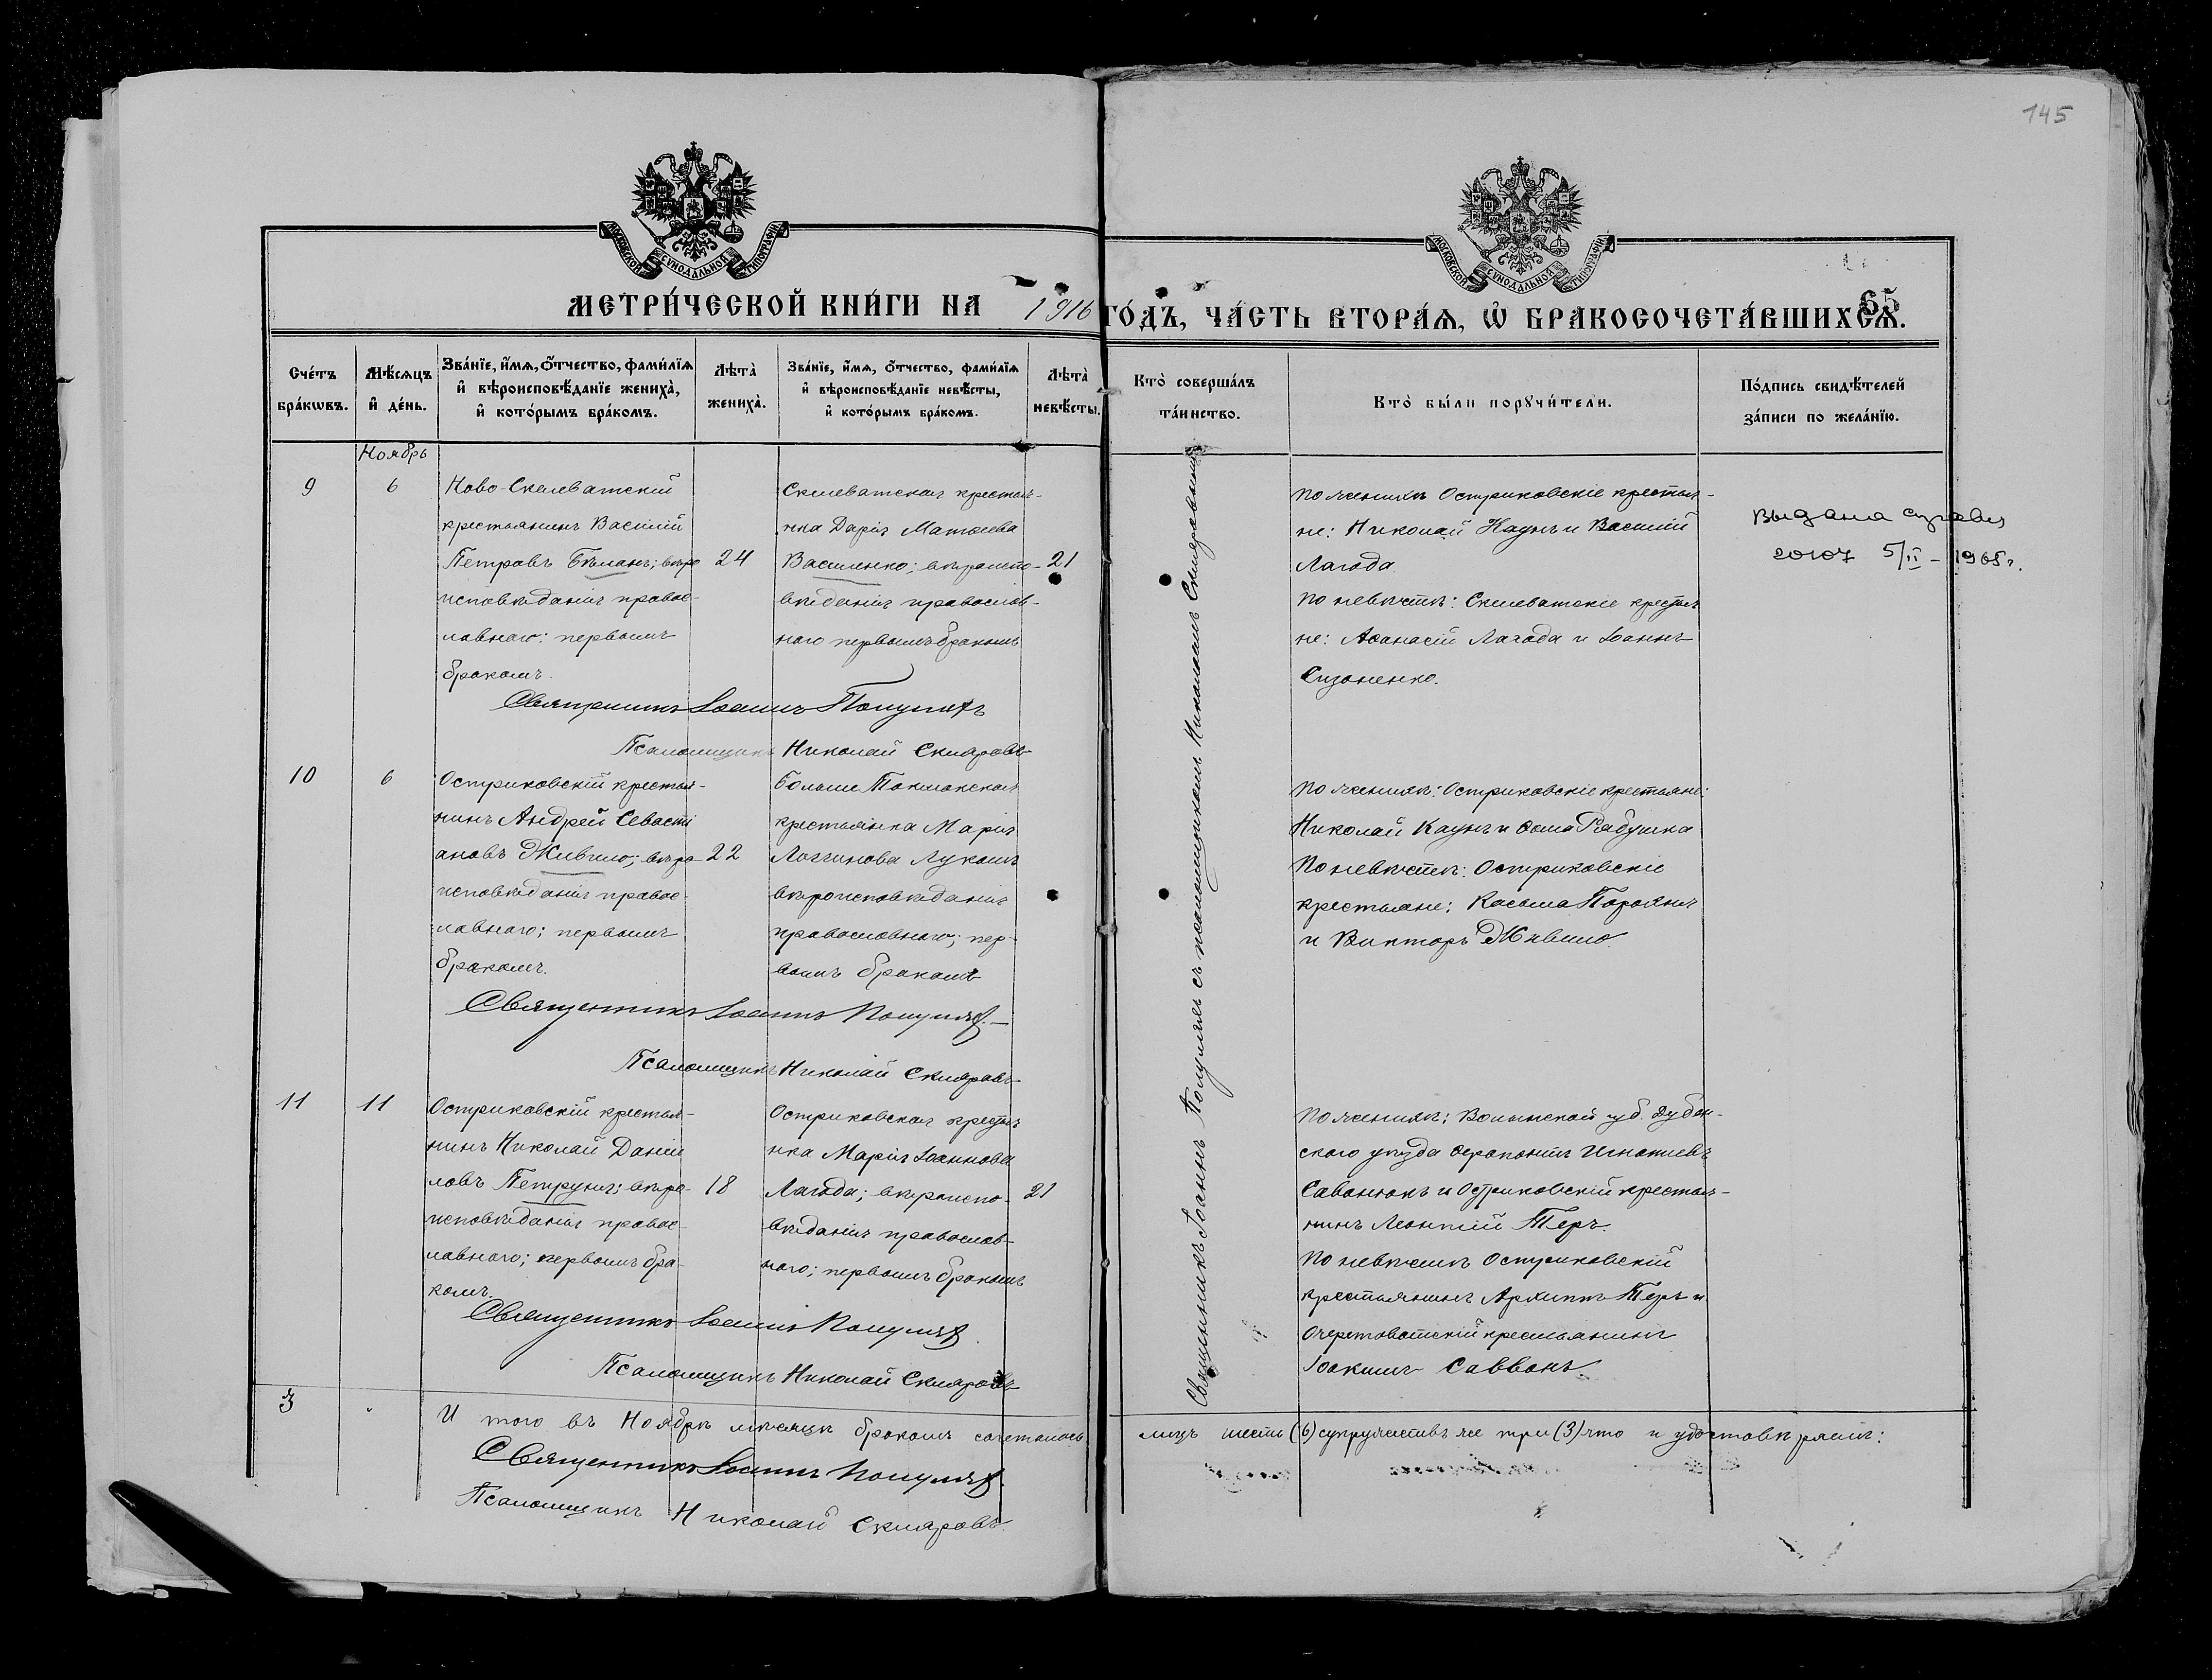 145
МОСКОВСКОЙ СУНОДАЛЬНОЙ ТИПОГРАФІИ
МОСКОВСКОЙ СУНОДАЛЬНОЙ ТИПОГРАФІИ
МЕТРИ́ЧЕСКОЙ КНИ́ГИ НА 1916 ГО́ДЪ, ЧА́СТЬ ВТОРА́Ѧ, Ѡ҆ БРАКОСОЧЕТА́ВШИХСѦ.
65
Сче́тъ бра́кѡвъ.
Мѣ́сѧцъ и҆ де́нь.
Зва́нїе, и҆́мѧ, ѻ҆́тчество, фами́лїѧ
и҆ вѣроисповѣ́данїе жениха̀,
и҆ кото́рымъ бра́комъ.
Лѣта̀ жениха̀.
Зва́нїе, и҆́мѧ, ѻ҆́тчество, фами́лїѧ
и҆ вѣроисповѣ́данїе невѣ́сты,
и҆ кото́рымъ бра́комъ.
Лѣта̀ невѣ́сты.
Кто̀ соверша́лъ та́инство.
Кто̀ бы́ли порꙋчи́тели.
По́дпись свидѣ́телей
за́писи по жела́нїю.
Ноябрь
9
6
Ново-Скелеватскій
крестьянинъ Василій
Петровъ Бѣланъ; вѣро
исповѣданія правос-
лавнаго: первымъ
бракомъ.
24
Скелеватская крестья-
нка Дарія Матѳеева
Василенко; вѣроиспо-
вѣданія православ-
наго первымъ бракомъ
21
По женихѣ Остриковскіе крестья-
не: Николай Каунъ и Василій
Лагода
По невѣстѣ: Скелеватскіе крестья
не: Аѳанасій Лагода и Іоаннъ
Сизоненко.
Выдана справка
20107 5/II - 1965 г.
Священникъ Іоаннъ
Псаломщикъ Николай Скляровъ
10
6
Остриковскій крестья-
нинъ Андрей Севасті
ановъ Живило; вѣро-
исповѣданія правос-
лавнаго; первымъ
бракомъ.
22
Больше Токмакская
крестьянка Марія
Логгинова Лукашъ
вѣроисповѣданія
православнаго; пер-
вымъ бракомъ
По женихѣ: Остриковскіе крестьяне:
Николай Каунъ и Ѳома Рябушка
По невѣстѣ: Остриковскіе
крестьяне; Косьма
и Викторъ Живило
Священникъ Іоаннъ
Псаломщикъ Николай Скляровъ
11
11
Остриковскій крестья-
нинъ Николай Даніи
ловъ Петруня; вѣро-
исповѣданія правос-
лавнаго; первымъ бра-
комъ.
18
Остриковская крестья
нка Марія Іоаннова
Лагода; вѣроиспо-
вѣданія православ-
наго; первымъ бракомъ
21
По женихѣ; Волынской губ. Дубен-
скаго уѣзда Ѳерапонтъ Игнатіевъ
Саванюкъ и Остриковскій крестья-
нинъ Леонтій Теръ.
По невѣстѣ Остриковскій
крестьянинъ Архиппъ Теръ и
Очеретоватскій крестьянинъ
Іоакимъ Саввонъ
Священникъ Іоаннъ
Псаломщикъ Николай Скляровъ
Священникъ Іоаннъ съ псаломщикомъ Николаемъ Скляровымъ
3
И того въ Ноябрѣ мѣсяцѣ бракомъ сочеталось лицъ шесть (6) супружествъ же три (3) что и удостовѣряемъ:
Священникъ Іоаннъ
Псаломщикъ Николай Скляровъ